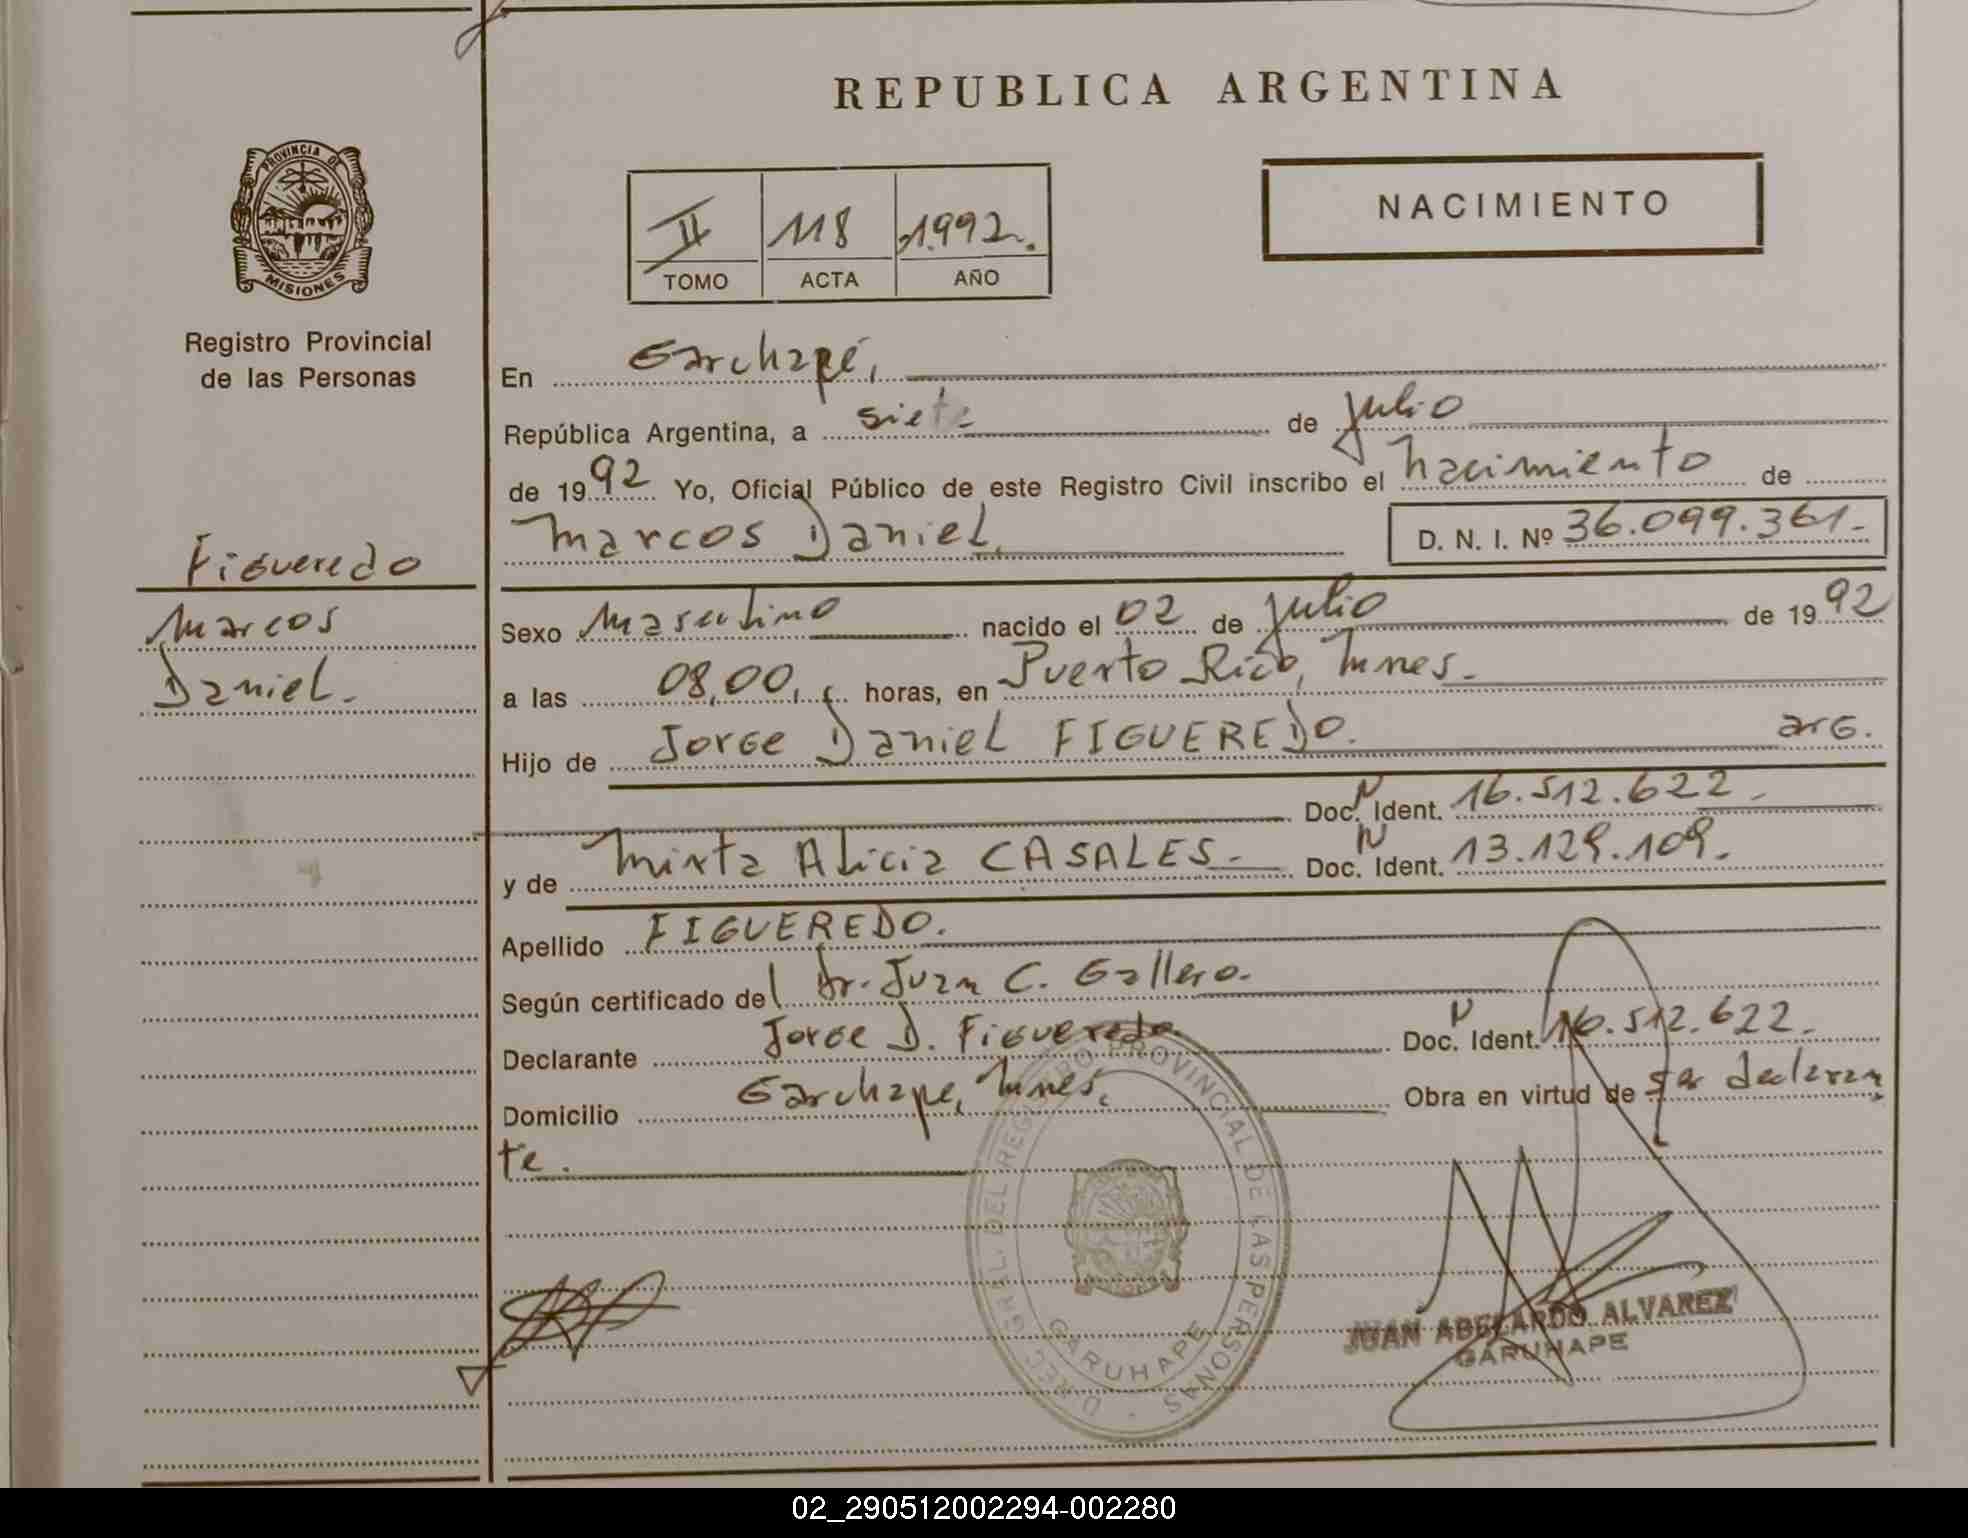 REPUBLICA ARGENTINA
PROVINCIA DE
MISIONES
Registro Provincial
de las Personas
NACIMIENTO
II 118 1992.
TOMO ACTA AÑO
En Garuhapé,
República Argentina, a siete de julio
de 1992 Yo, Oficial Público de este Registro Civil inscribo el nacimiento de
Marcos Daniel D. N. I. Nº 36.099.361.-
Figueredo
Marcos
Daniel.-
Sexo Masculino nacido el 02 de julio de 1992
a las 08,00, horas, en Puerto Rico, Mnes.-
Hijo de Jorge Daniel FIGUEREDO. arg.
Doc. N Ident. 16.512.622.-
y de Mirta Alicia CASALES.- Doc. N Ident. 13.129.109.-
Apellido FIGUEREDO.
Según certificado del Dr. Juan C. Gallero.
Declarante Jorge D. Figueredo Doc. N Ident. 16.512.622.
Domicilio Garuhape, Mnes, Obra en virtud de ser declaran
te.
DIREC. GRAL. DEL REGISTRO PROVINCIAL DE LAS PERSONAS
GARUHAPE
JUAN ABELARDO ALVAREZ
GARUHAPE
02_290512002294-002280